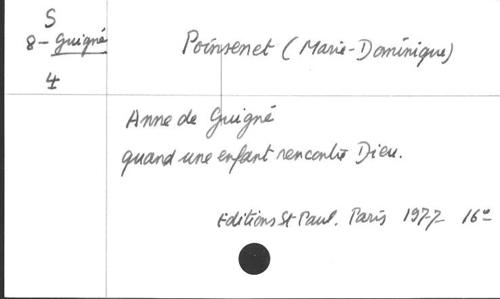 S
8-Guigné
4
Poinsenet (Marie-Dominique)
Anne de Guigné
quand une enfant rencontre Dieu.
Editions St Paul. Paris 1977 16°